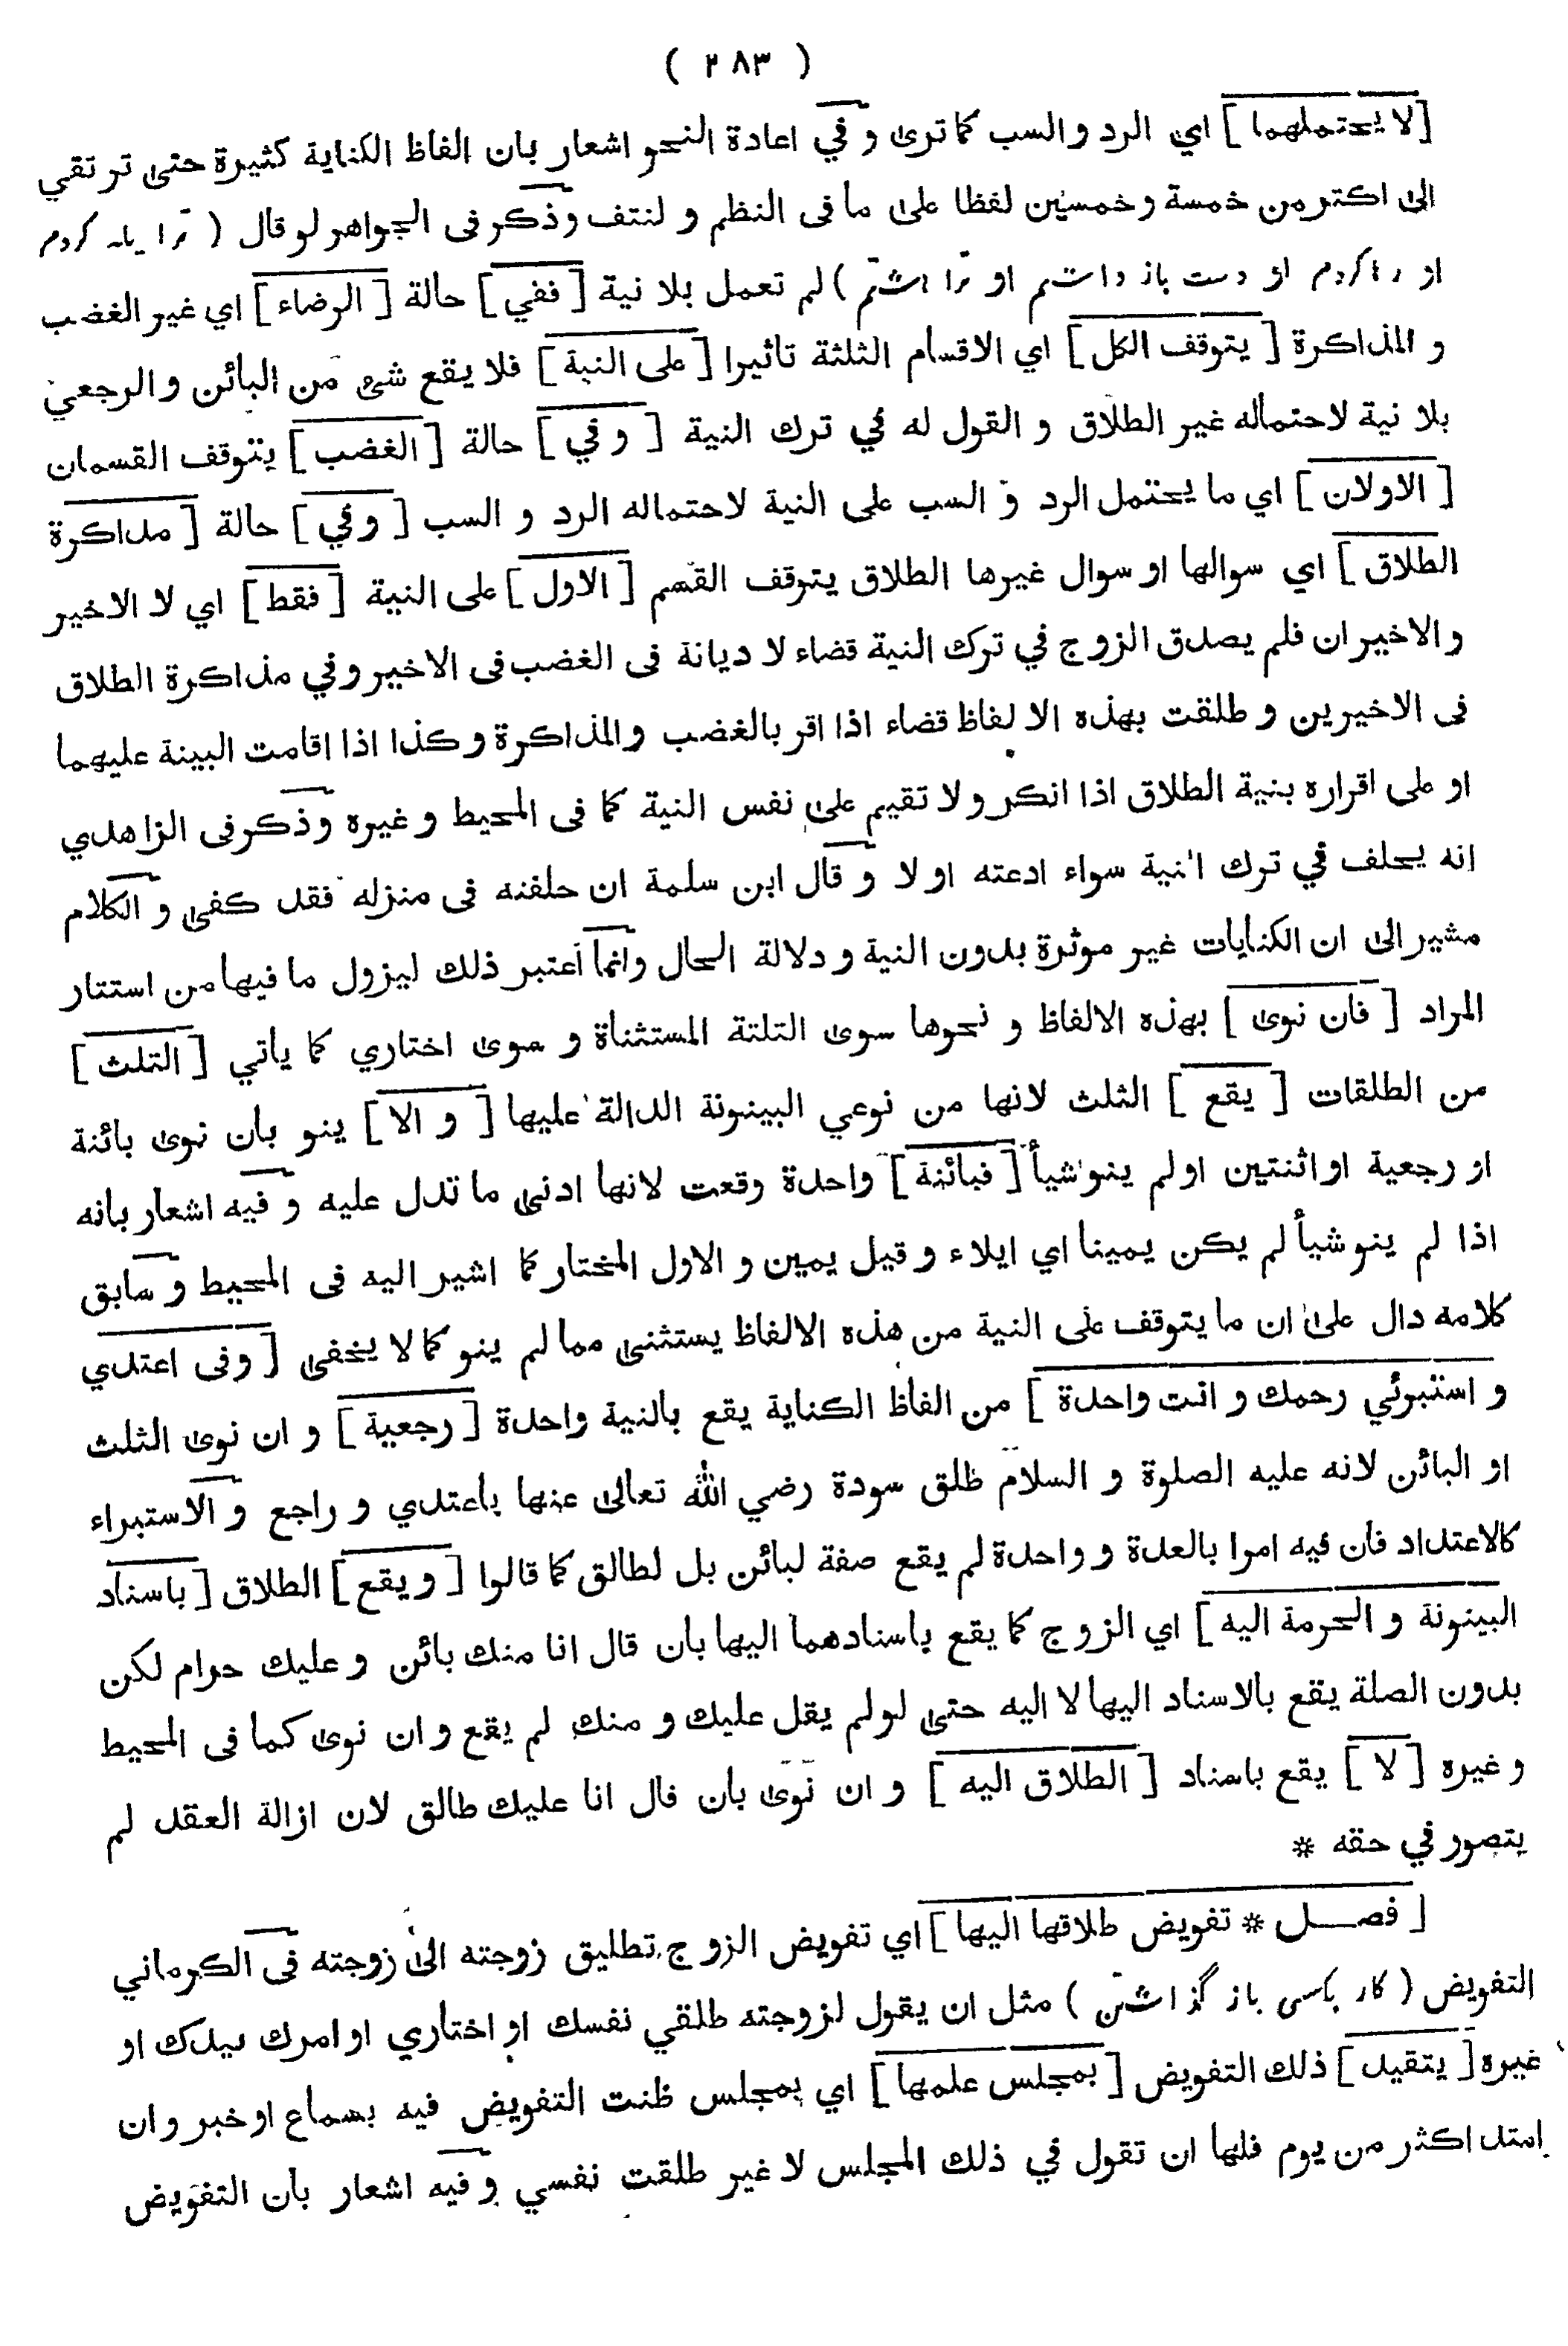 ( ٢٨٣ )
[لا يحتملهما] اي الرد والسب كما ترى و في اعادة النحو اشعار بان الفاظ الكناية كثيرة حتى ترتقي
الى اكثر من خمسة و خمسين لفظا على ما فى النظم و لنتف وذكر فى الجواهر لو قال ( ترا يله كردم
او رها كردم او دست باز داشتم او ترا هشتم ) لم تعمل بلا نية [ ففي ] حالة [ الرضاء ] اي غير الغضب
و المذاكرة [ يتوقف الكل ] اي الاقسام الثلثة تاثيرا [ على النية ] فلا يقع شئ من البائن و الرجعي
بلا نية لاحتماله غير الطلاق و القول له في ترك النية [ و في ] حالة [ الغضب ] يتوقف القسمان
[ الاولان ] اي ما يحتمل الرد و السب على النية لاحتماله الرد و السب [ وفي ] حالة [ مذاكرة
الطلاق ] اي سوالها او سوال غيرها الطلاق يتوقف القسم [ الاول ] على النية [ فقط ] اي لا الاخير
و الاخيران فلم يصدق الزوج في ترك النية قضاء لا ديانة فى الغضب فى الاخير وفي مذاكرة الطلاق
فى الاخيرين و طلقت بهذه الالفاظ قضاء اذا اقر بالغضب والمذاكرة و كذا اذا اقامت البينة عليهما
او على اقراره بنية الطلاق اذا انكر ولا تقيم على نفس النية كما فى المحيط و غيره وذكر فى الزاهدي
انه يحلف في ترك النية سواء ادعته او لا و قال ابن سلمة ان حلفته فى منزله فقد كفى و الكلام
مشير الى ان الكنايات غير موثرة بدون النية و دلالة الحال وانما اعتبر ذلك ليزول ما فيها من استتار
المراد [ فان نوى ] بهذه الالفاظ و نحوها سوى الثلثة المستثناة و سوى اختاري كما يأتي [ الثلث ]
من الطلقات [ يقع ] الثلث لانها من نوعي البينونة الدالة عليها [ و الا ] ينو بان نوى بائنة
او رجعية او اثنتين او لم ينو شيأ [ فبائنة ] واحدة وقعت لانها ادنى ما تدل عليه و فيه اشعار بانه
اذا لم ينو شيأ لم يكن يمينا اي ايلاء و قيل يمين و الاول المختار كما اشير اليه فى المحيط و سابق
كلامه دال على ان ما يتوقف على النية من هذه الالفاظ يستثنى مما لم ينو كما لا يخفى [ وفى اعتدي
و استبرئي رحمك و انت واحدة ] من الفاظ الكناية يقع بالنية واحدة [ رجعية ] و ان نوى الثلث
او البائن لانه عليه الصلوة و السلام طلق سودة رضي الله تعالى عنها باعتدي و راجع و الاستبراء
كالاعتداد فان فيه امرا بالعدة و واحدة لم يقع صفة لبائن بل لطالق كما قالوا [ و يقع ] الطلاق [ باسناد
البينونة و الحرمة اليه ] اي الزوج كما يقع باسنادهما اليها بان قال انا منك بائن و عليك حرام لكن
بدون الصلة يقع بالاسناد اليها لا اليه حتى لو لم يقل عليك و منك لم يقع و ان نوى كما فى المحيط
و غيره [ لا ] يقع باسناد [ الطلاق اليه ] و ان نوى بان قال انا عليك طالق لان ازالة العقد لم
يتصور في حقه *
[ فصــل * تفويض طلاقها اليها ] اي تفويض الزوج تطليق زوجته الى زوجته فى الكرماني
التفويض ( كار بكسى باز گذاشتن ) مثل ان يقول لزوجته طلقي نفسك او اختاري او امرك بيدك او
غيره [ يتقيد ] ذلك التفويض [ بمجلس علمها ] اي بمجلس ظنت التفويض فيه بسماع او خبر و ان
امتد اكثر من يوم فلها ان تقول في ذلك المجلس لا غير طلقت نفسي و فيه اشعار بان التفويض